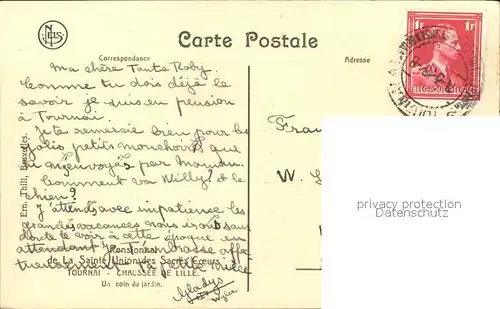 NELS
Carte Postale
Correspondance
Adresse
1F 1F
BELGIQUE BELGIE
Ma chère Tante Roby.
Comme tu dois déjà le
savoir je suis en pension
à Tournai.
Je te remercie bien pour les
jolis petits mouchoirs que
tu m'envoyés par Maman.
Comment va Willy? et le
chien?
J'attends avec impatience les
grandes vacances nous irons sans
doute te voir à cette époque en
attendant je t'embrasse affec
tueusement ta petite nièce
Gladys
Pensionnat
de La Sainte Union des Sacrés Cœurs
TOURNAI - CHAUSSÉE DE LILLE.
Un coin du jardin.
Ern. Thill, Bruxelles.
Fran
W. L
privacy protection
Datenschutz